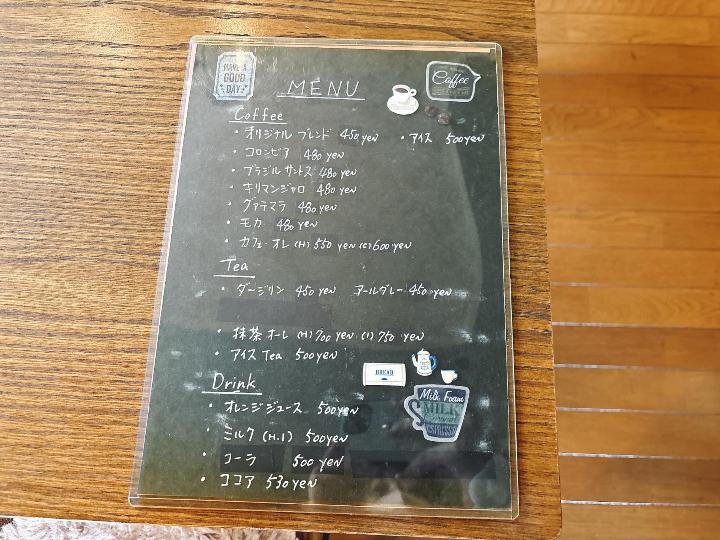 HAVE A
GOOD
DAY
MENU
Coffee
Coffee
・オリジナル ブレンド 450 yen ・アイス 500 yen
・コロンビア 480 yen
・ブラジル サントス 480 yen
・キリマンジャロ 480 yen
・グァテマラ 480 yen
・モカ 480 yen
・カフェ・オレ (H) 550 yen (C) 600 yen
Tea
・ダージリン 450 yen アールグレー 450 yen
・抹茶オーレ (H) 700 yen (I) 750 yen
・アイス Tea 500 yen
BREAD
Drink
Milk Foam
MILK
ESPRESSO
・オレンジジュース 500 yen
・ミルク (H.I) 500 yen
・コーラ 500 yen
・ココア 530 yen